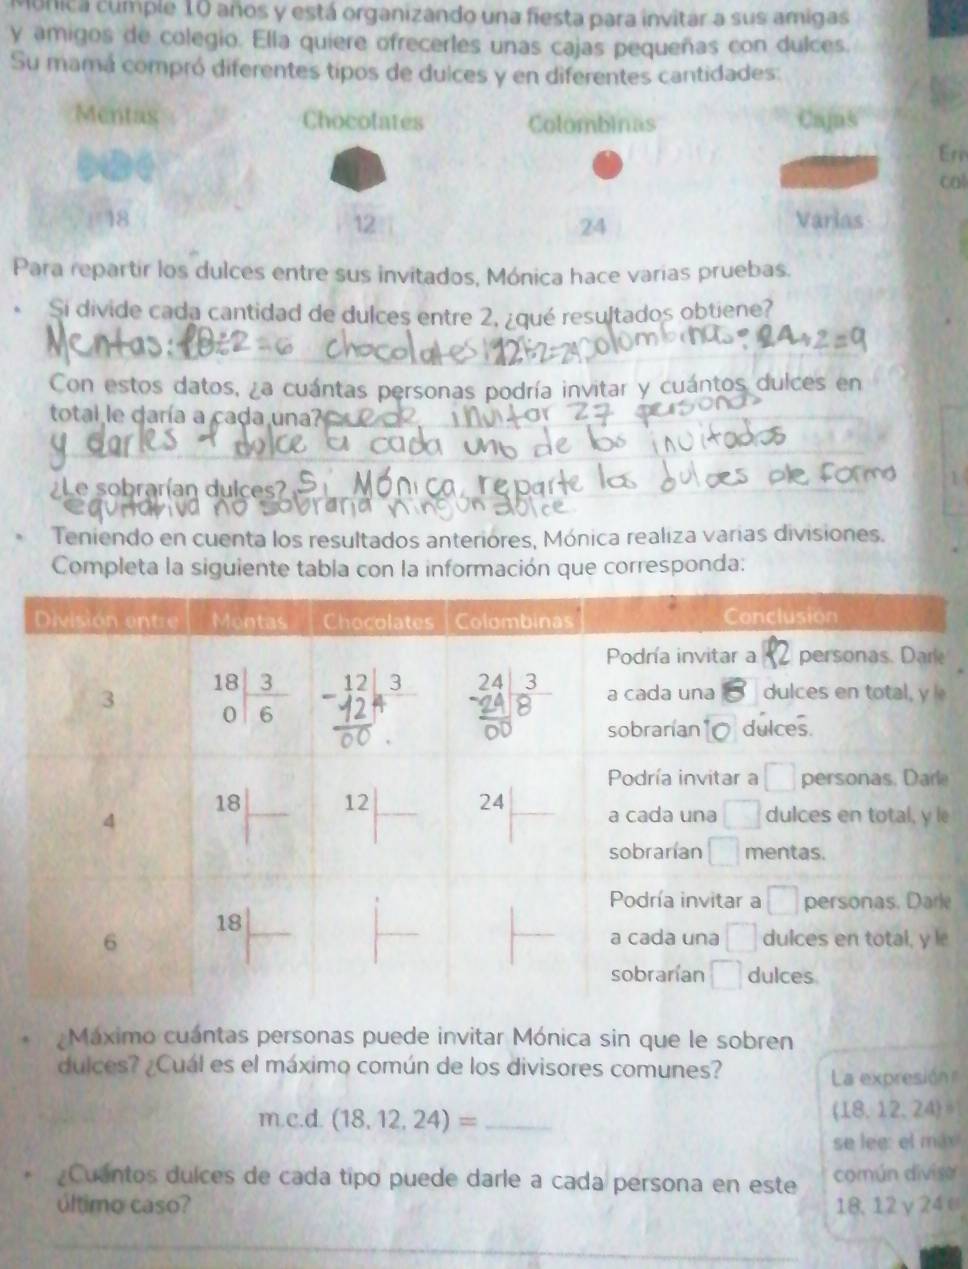 Mónica cumple 10 años y está organizando una fiesta para invitar a sus amigas
y amigos de colegio. Ella quiere ofrecerles unas cajas pequeñas con dulces.
Su mamá compró diferentes tipos de dulces y en diferentes cantidades:
Mentas Chocolates Colombinas Cajas
18 12 24 Varias
Para repartir los dulces entre sus invitados, Mónica hace varias pruebas.
• Si divide cada cantidad de dulces entre 2, ¿qué resultados obtiene?
Mentas: 18÷2=6 chocolates: 12÷2=24 colombinas: 24÷2=9
Con estos datos, ¿a cuántas personas podría invitar y cuántos dulces en
total le daría a cada una? puede invitar 27 personas
y darles 1 dulce a cada uno de los invitados
¿Le sobrarían dulces? Si Mónica, reparte los dulces de forma
equitativa no sobraria ningún dulce
• Teniendo en cuenta los resultados anteriores, Mónica realiza varias divisiones.
Completa la siguiente tabla con la información que corresponda:
División entre Mentas Chocolates Colombinas Conclusión
Podría invitar a 12 personas. Darle
3 18 3 12 3 24 3 a cada una 8 dulces en total, y le
0 6 -12 4 -24 8
00 00 sobrarían 0 dulces.
Podría invitar a personas. Darle
4 18 12 24 a cada una dulces en total, y le
sobrarían mentas.
Podría invitar a personas. Darle
6 18 a cada una dulces en total, y le
sobrarían dulces.
• ¿Máximo cuántas personas puede invitar Mónica sin que le sobren
dulces? ¿Cuál es el máximo común de los divisores comunes?
m.c.d. (18, 12, 24) = ______
• ¿Cuántos dulces de cada tipo puede darle a cada persona en este
último caso?
La expresión
(18, 12, 24) =
se lee: el máx
común divisor
18, 12 y 24